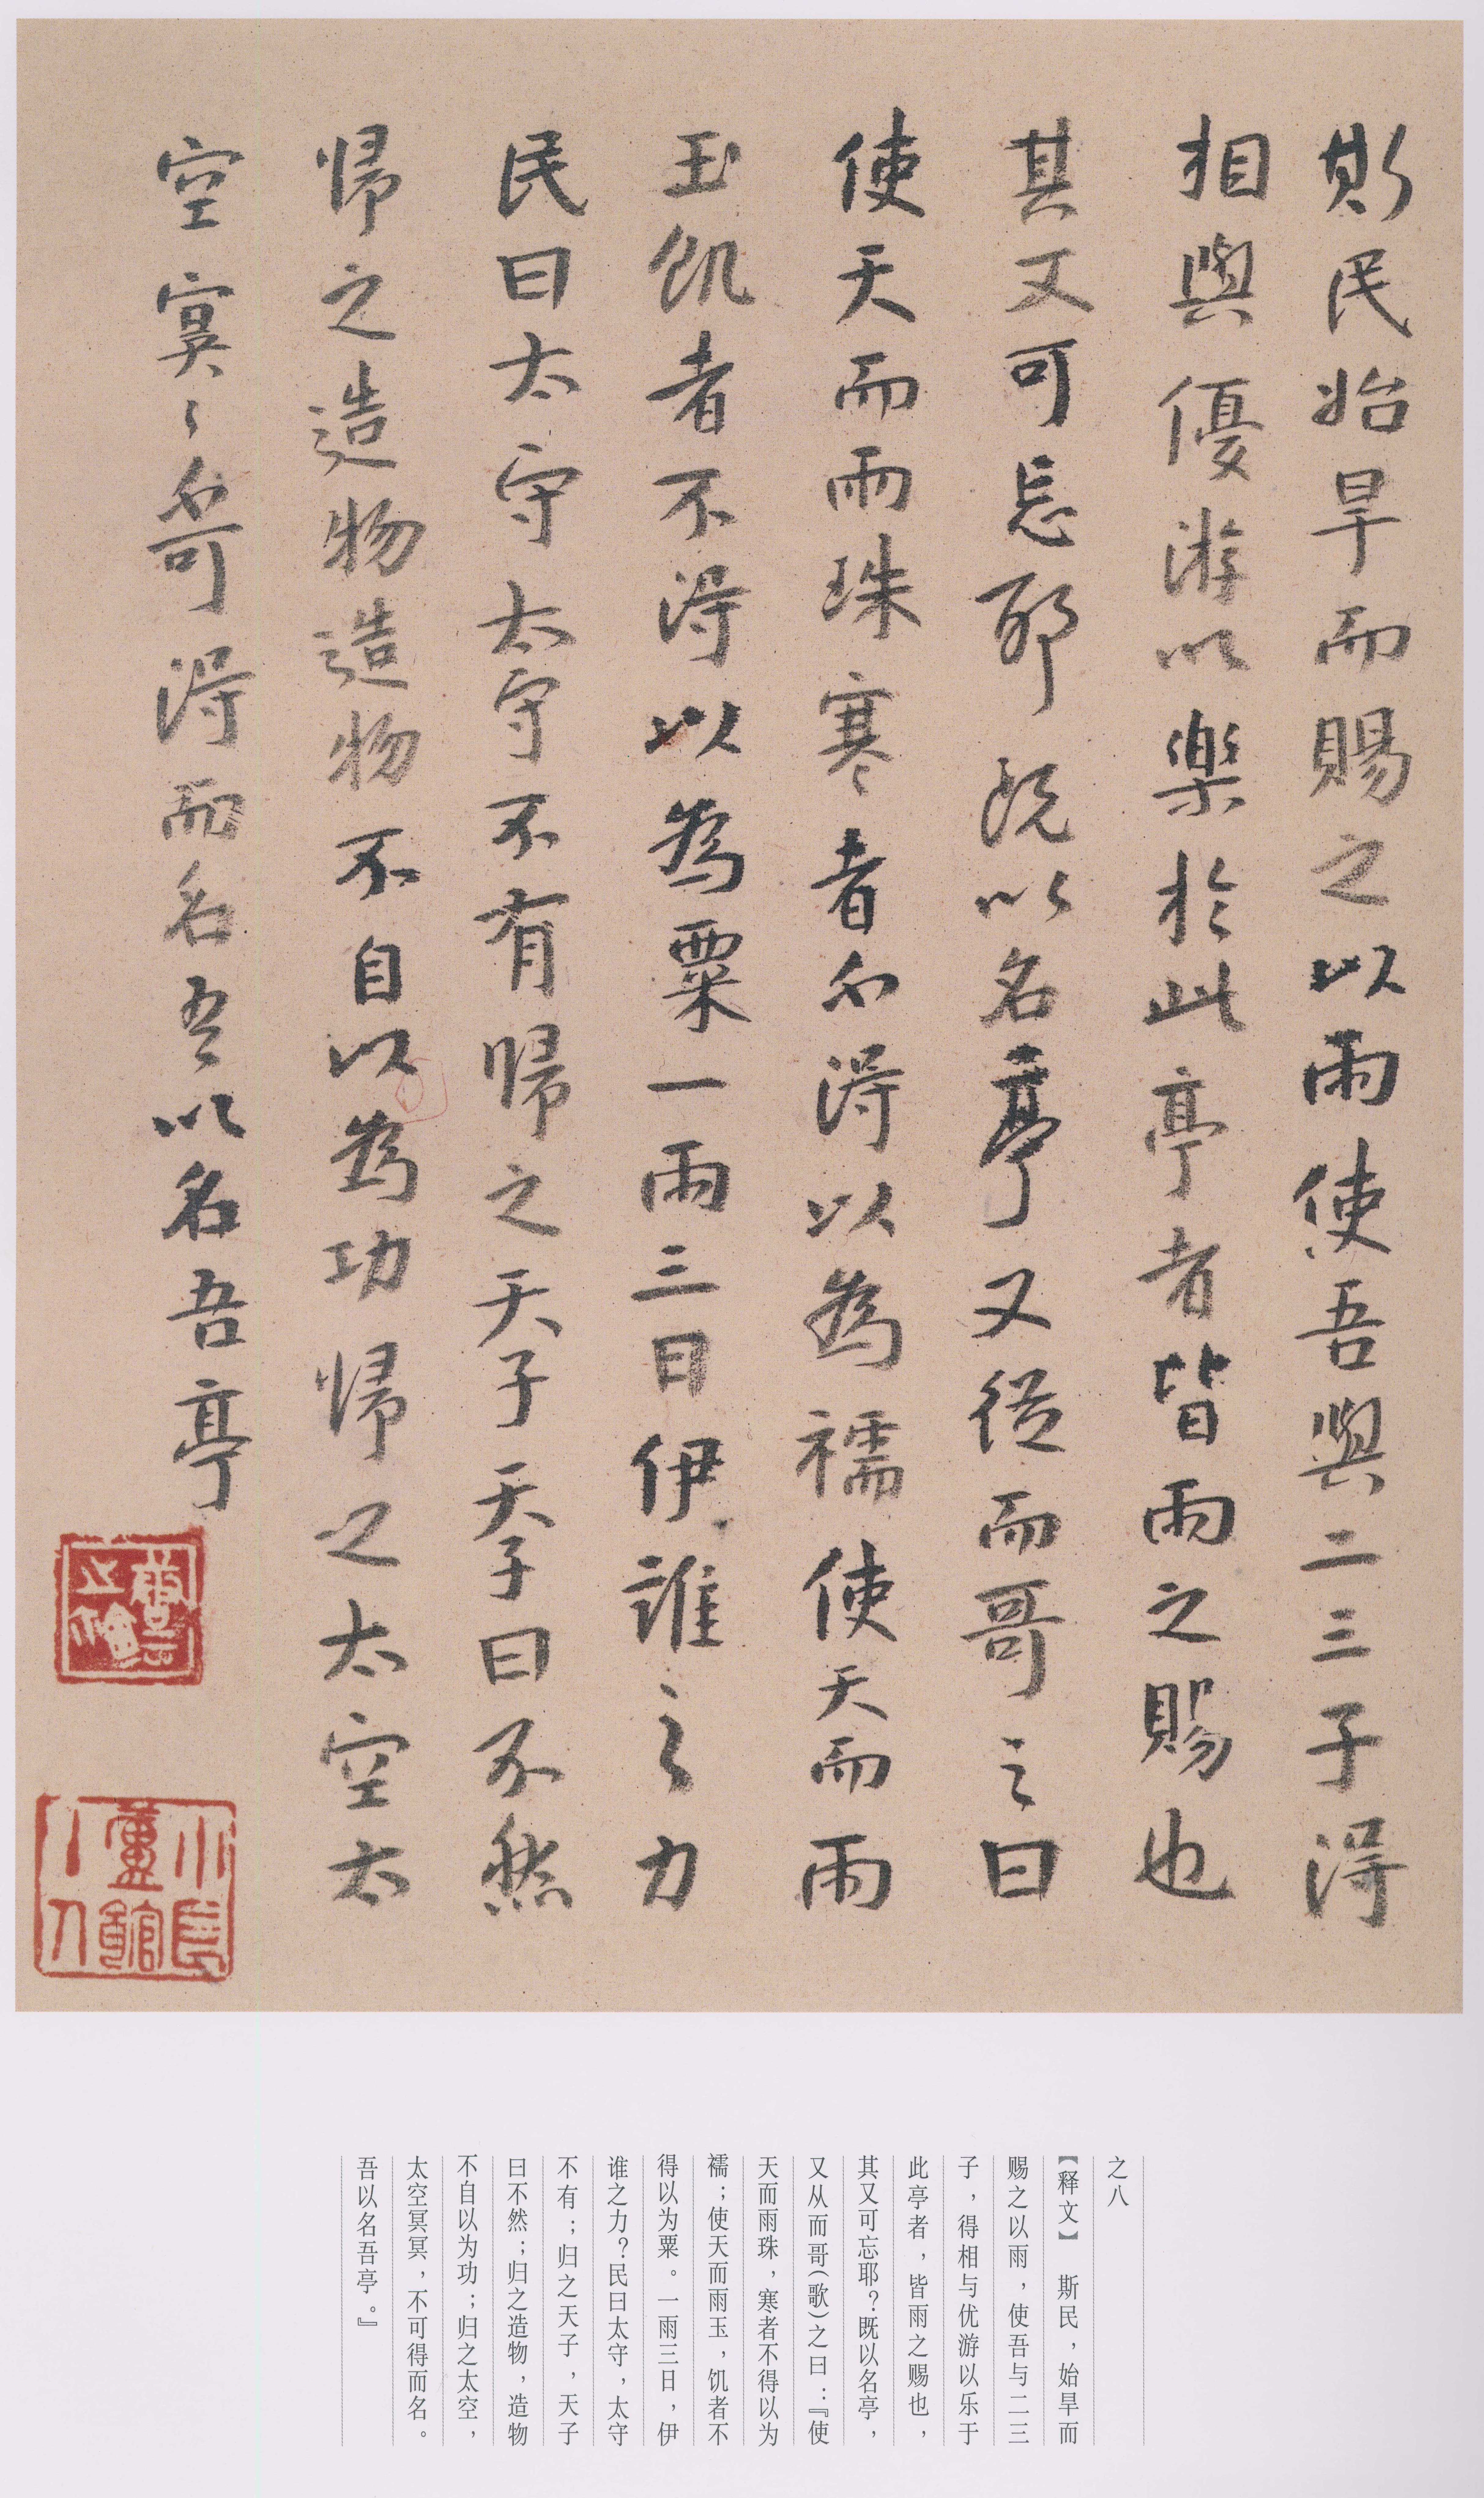 斯民始旱而賜之以雨使吾與二三子得
相與優游以樂於此亭者皆雨之賜也
其又可忘耶既以名亭又從而哥之曰
使天而雨珠寒者不得以為襦使天而雨
玉飢者不得以為粟一雨三日伊誰之力
民曰太守太守不有歸之天子天子曰不然
歸之造物造物不自以為功歸之太空太
空冥〻不可得而名吾以名吾亭
之八
【释文】 斯民，始旱而
赐之以雨，使吾与二三
子，得相与优游以乐于
此亭者，皆雨之赐也，
其又可忘耶？既以名亭，
又从而哥（歌）之曰：『使
天而雨珠，寒者不得以为
襦；使天而雨玉，饥者不
得以为粟。一雨三日，伊
谁之力？民曰太守，太守
不有；归之天子，天子
曰不然；归之造物，造物
不自以为功；归之太空，
太空冥冥，不可得而名。
吾以名吾亭。』